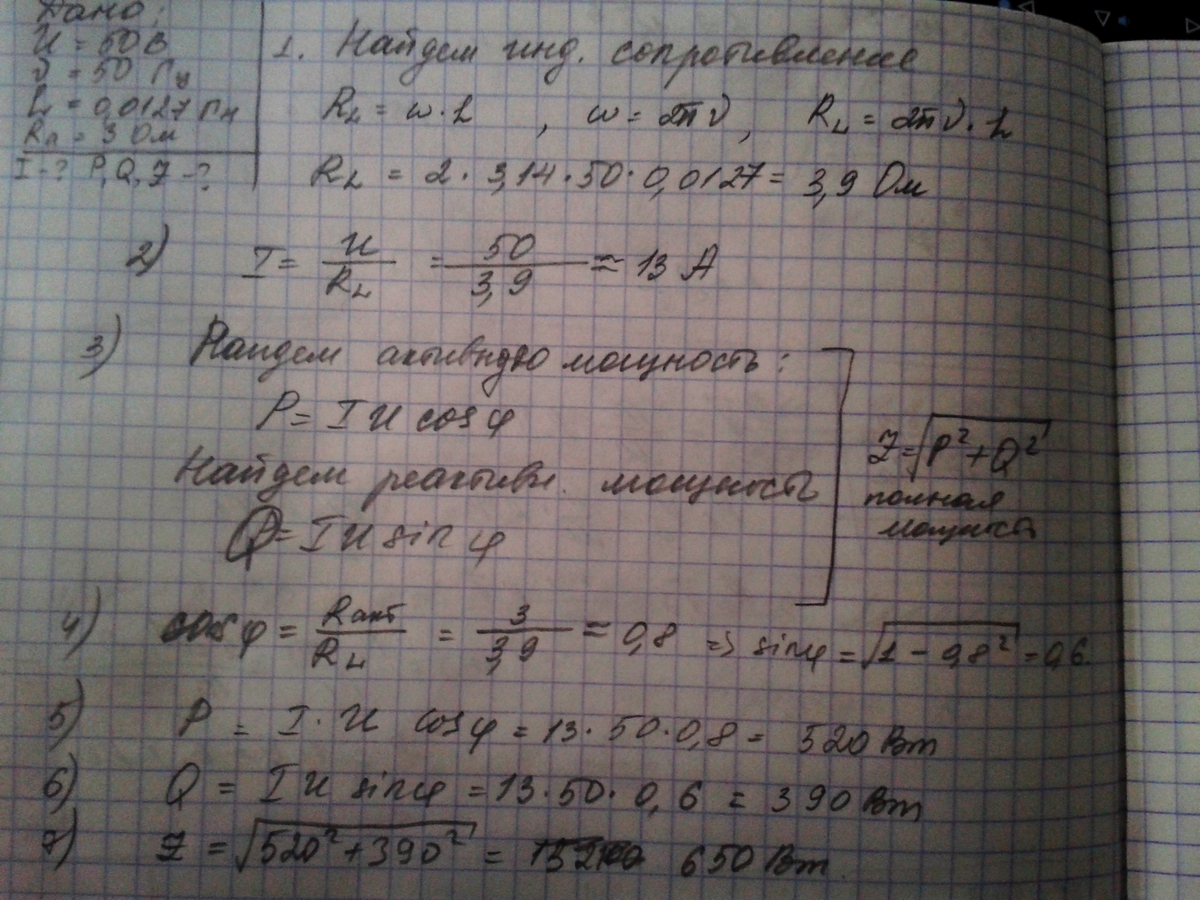 Дано:
U = 50 В
ν = 50 Гц
L = 0,0127 Гн
Rл = 3 Ом
I - ? P, Q, Z - ?
1. Найдем инд. сопротивление
RL = ω · L , ω = 2πν , RL = 2πν · L
RL = 2 · 3,14 · 50 · 0,0127 = 3,9 Ом
2) I = U / RL = 50 / 3,9 ≈ 13 А
3) Найдем активную мощность :
P = I U cos φ
Найдем реактивн. мощность
Q = I U sin φ
Z = √(P² + Q²)
полная
мощност
4) cos φ = Rакт / RL = 3 / 3,9 ≈ 0,8 => sin φ = √(1 - 0,8²) = 0,6
5) P = I · U cos φ = 13 · 50 · 0,8 = 520 Вт
6) Q = I U sin φ = 13 · 50 · 0,6 = 390 Вт
7) Z = √(520² + 390²) = 650 Вт.